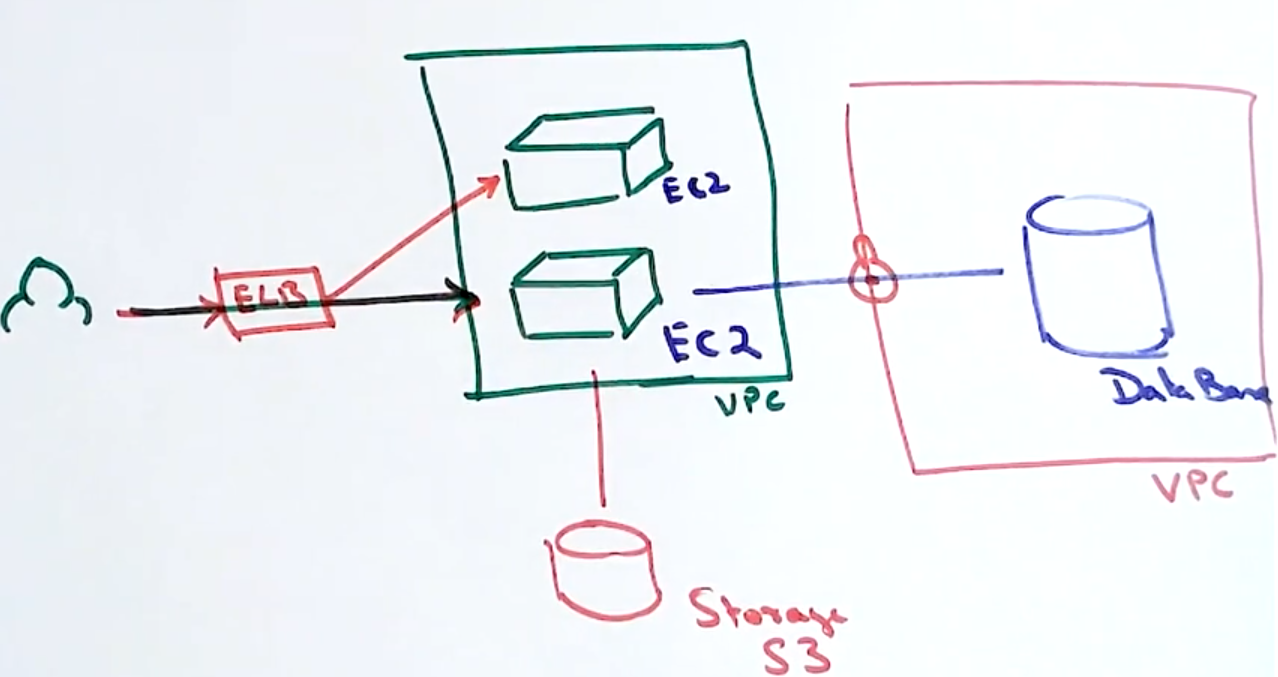 EC2
ELB
EC2
VPC
DataBase
VPC
Storage
S3